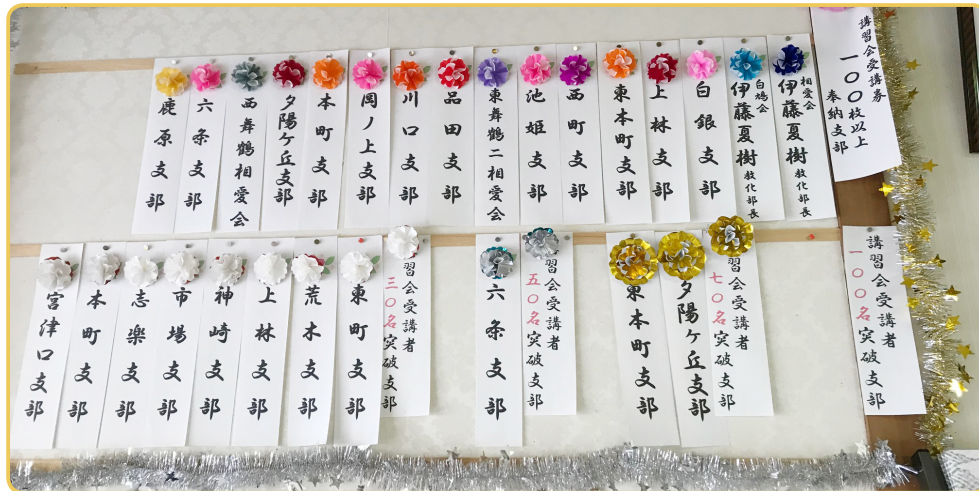 講習会受講券
一〇〇枚以上
奉納支部
相愛会
伊藤夏樹教化部長
白鳩会
伊藤夏樹教化部長
白銀支部
上林支部
東本町支部
西町支部
池姫支部
東舞鶴二相愛会
品田支部
川口支部
岡ノ上支部
本町支部
夕陽ケ丘支部
西舞鶴相愛会
六条支部
鹿原支部
講習会受講者
一〇〇名突破支部
習会受講者
七〇名突破支部
夕陽ケ丘支部
東本町支部
講習会受講者
五〇名突破支部
六条支部
習会受講者
三〇名突破支部
東町支部
荒木支部
上林支部
神崎支部
市場支部
志楽支部
本町支部
宮津口支部